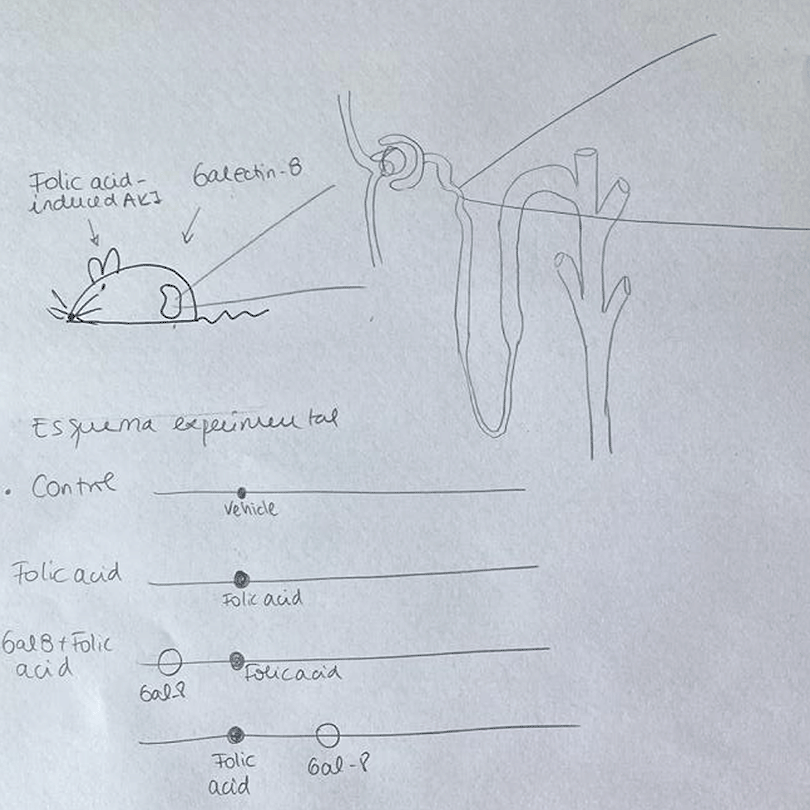 Folic acid-
induced AKI
Galectin-8
Esquema experimental
• Control
Vehicle
Folic acid
Folic acid
Gal8+Folic
acid
Folic acid
Gal-8
Folic
acid
Gal-8